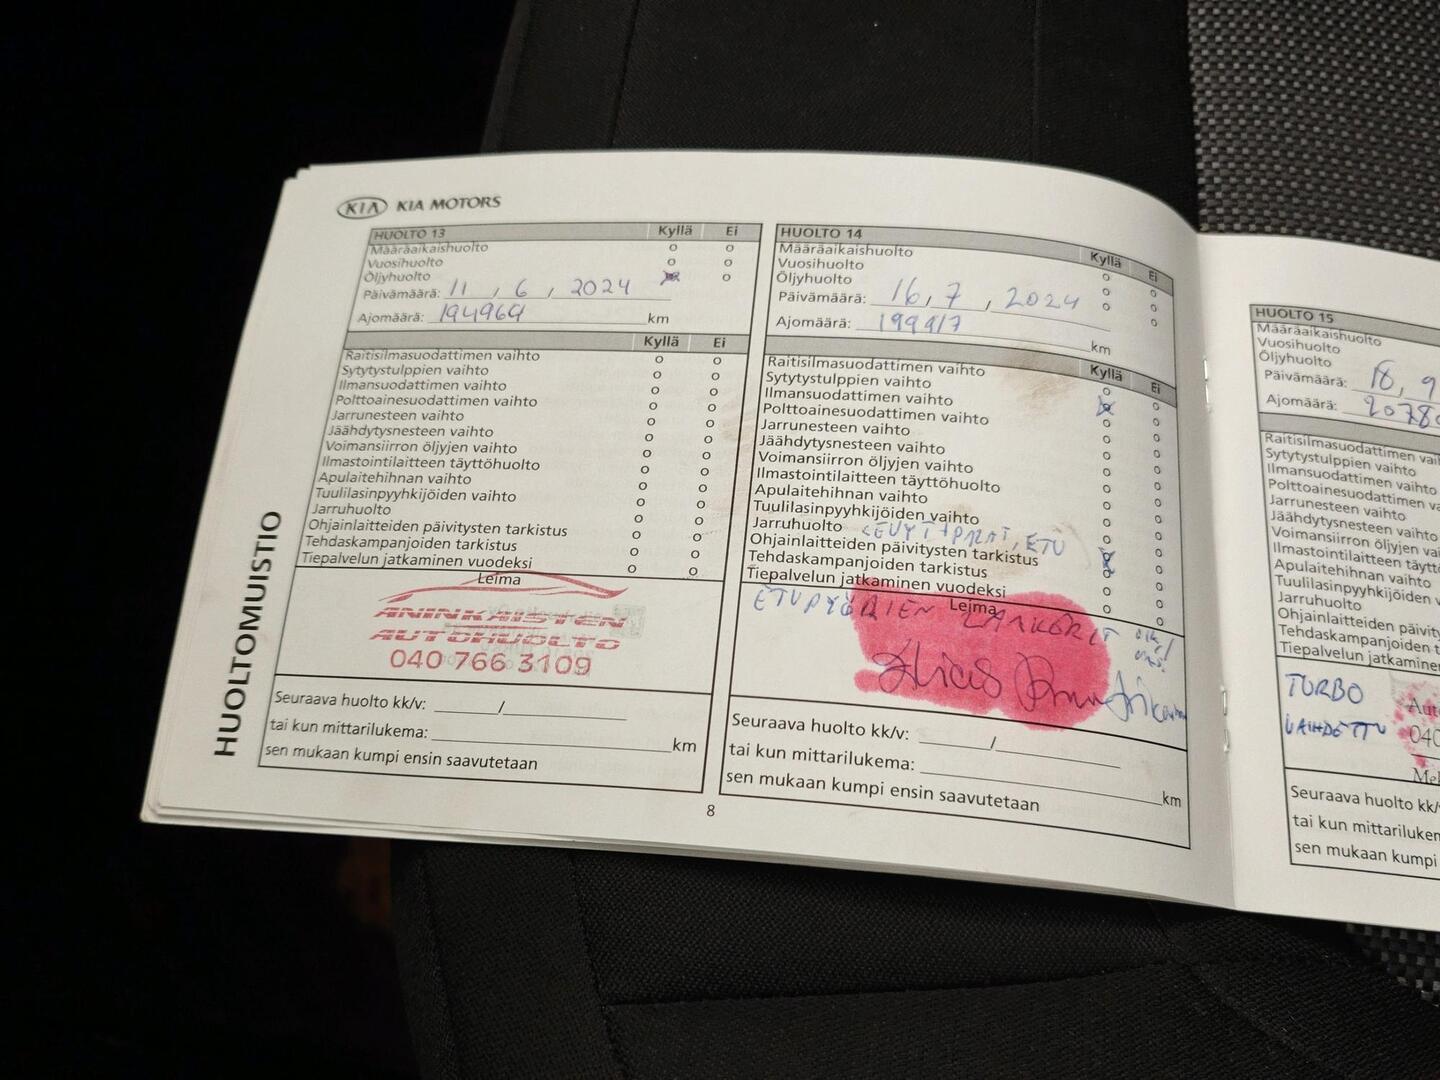 KIA KIA MOTORS
HUOLTOMUISTIO
HUOLTO 13 Kyllä Ei
Määräaikaishuolto o o
Vuosihuolto o o
Öljyhuolto o
Päivämäärä: 11, 6, 2024
Ajomäärä: 194969 km
Kyllä Ei
Raitisilmasuodattimen vaihto o o
Sytytystulppien vaihto o o
Ilmansuodattimen vaihto o o
Polttoainesuodattimen vaihto o o
Jarrunesteen vaihto o o
Jäähdytysnesteen vaihto o o
Voimansiirron öljyjen vaihto o o
Ilmastointilaitteen täyttöhuolto o o
Apulaitehihnan vaihto o o
Tuulilasinpyyhkijöiden vaihto o o
Jarruhuolto o o
Ohjainlaitteiden päivitysten tarkistus o o
Tehdaskampanjoiden tarkistus o o
Tiepalvelun jatkaminen vuodeksi o o
Leima
ANINKAISTEN
AUTOHUOLTO
040 766 3109
Seuraava huolto kk/v: /
tai kun mittarilukema: km
sen mukaan kumpi ensin saavutetaan
HUOLTO 14 Kyllä Ei
Määräaikaishuolto o o
Vuosihuolto o o
Öljyhuolto o o
Päivämäärä: 16, 7, 2024
Ajomäärä: km
Kyllä Ei
Raitisilmasuodattimen vaihto o o
Sytytystulppien vaihto o
Ilmansuodattimen vaihto o o
Polttoainesuodattimen vaihto o o
Jarrunesteen vaihto o o
Jäähdytysnesteen vaihto o o
Voimansiirron öljyjen vaihto o o
Ilmastointilaitteen täyttöhuolto o o
Apulaitehihnan vaihto o o
Tuulilasinpyyhkijöiden vaihto o o
Jarruhuolto LEVYT+PALAT, ETU
Ohjainlaitteiden päivitysten tarkistus o o
Tehdaskampanjoiden tarkistus o o
Tiepalvelun jatkaminen vuodeksi o o
Leima
ETUPYÖRIEN LAAKERIT
Seuraava huolto kk/v: /
tai kun mittarilukema: km
sen mukaan kumpi ensin saavutetaan
8
HUOLTO 15
Määräaikaishuolto
Vuosihuolto
Öljyhuolto
Päivämäärä: 18, 9
Ajomäärä: 2078
Raitisilmasuodattimen vai
Sytytystulppien vaihto
Ilmansuodattimen vaihto
Polttoainesuodattimen v
Jarrunesteen vaihto
Jäähdytysnesteen vaihto
Voimansiirron öljyjen vai
Ilmastointilaitteen täytt
Apulaitehihnan vaihto
Tuulilasinpyyhkijöiden v
Jarruhuolto
Ohjainlaitteiden päivity
Tehdaskampanjoiden t
Tiepalvelun jatkaminen
TURBO
VAIHDETTU
Aut
040
Mel
Seuraava huolto kk/
tai kun mittarilukem
sen mukaan kumpi